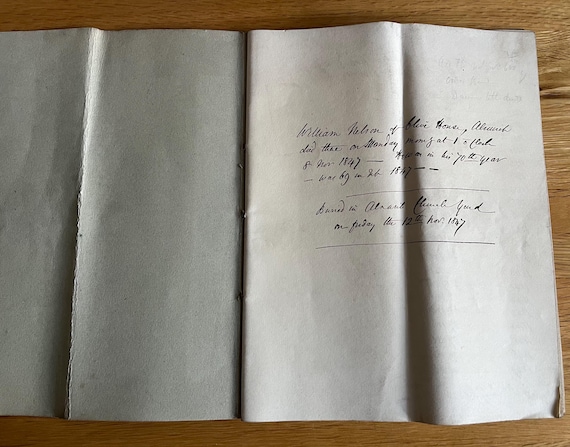 William Nelson of Olive House, Alnwick
died there on Monday morng at 1 o Clock
8 Nov 1847 — He was in his 70th year
— was 69 in Feb 1847 — —
Buried in Church Yard
on friday the 12th Nov. 1847